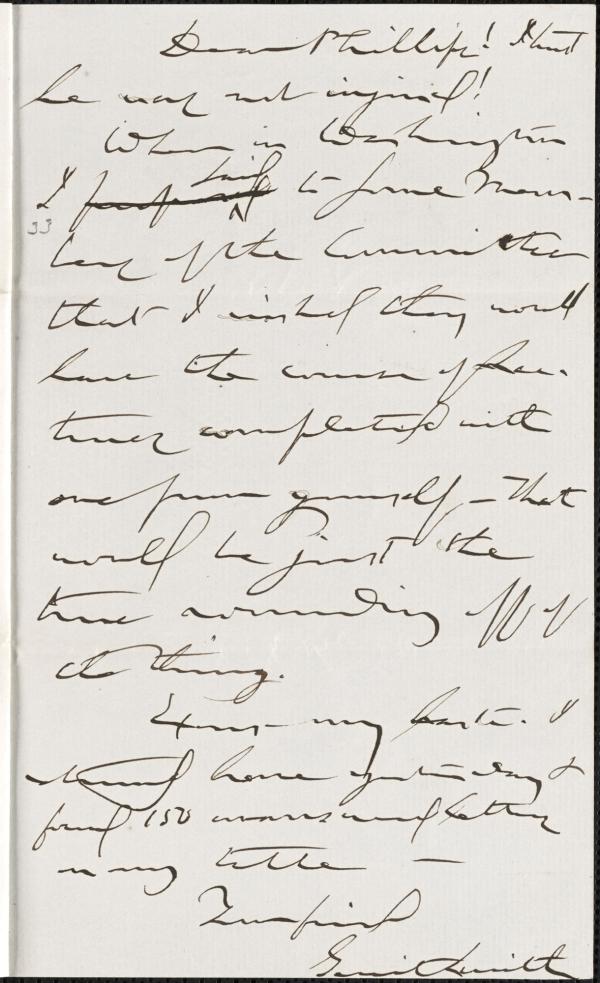 Dear Phillips! I trust
he was not injured!
When in Washington
said
I proposed to some Mem-
33
bers of the Committee
that I wished they would
have the course of lec-
tures completed with
one from yourself - That
would be just the
true rounding off of
the thing.
Excuse my haste. I
returned home yesterday &
found 150 unanswered letters
on my table —
Your friend
Gerrit Smith